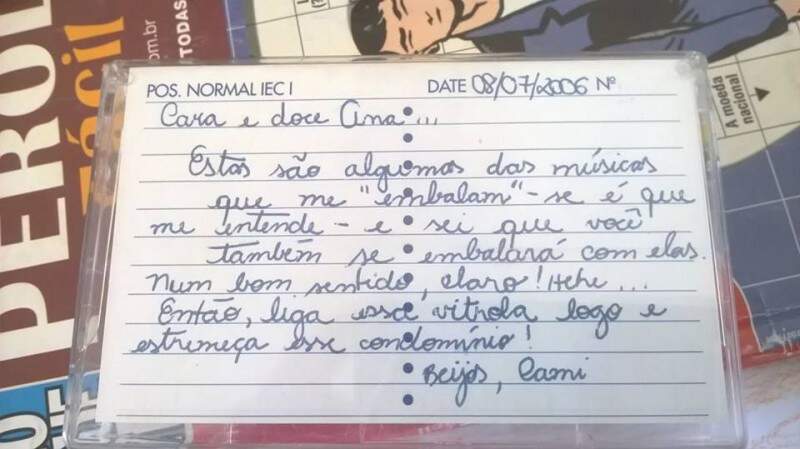 PEROL
Fácil
com.br
TODAS
A moeda
nacional
POS. NORMAL IEC I
DATE 08/07/2006 Nº
Cara e doce Ana...
Estas são algumas das músicas
que me "embalam" - se é que
me entende - e sei que você
também se embalará com elas.
Num bom sentido, claro! Hehe...
Então, liga essa vitrola logo e
estremeça esse condomínio!
Beijos, Cami